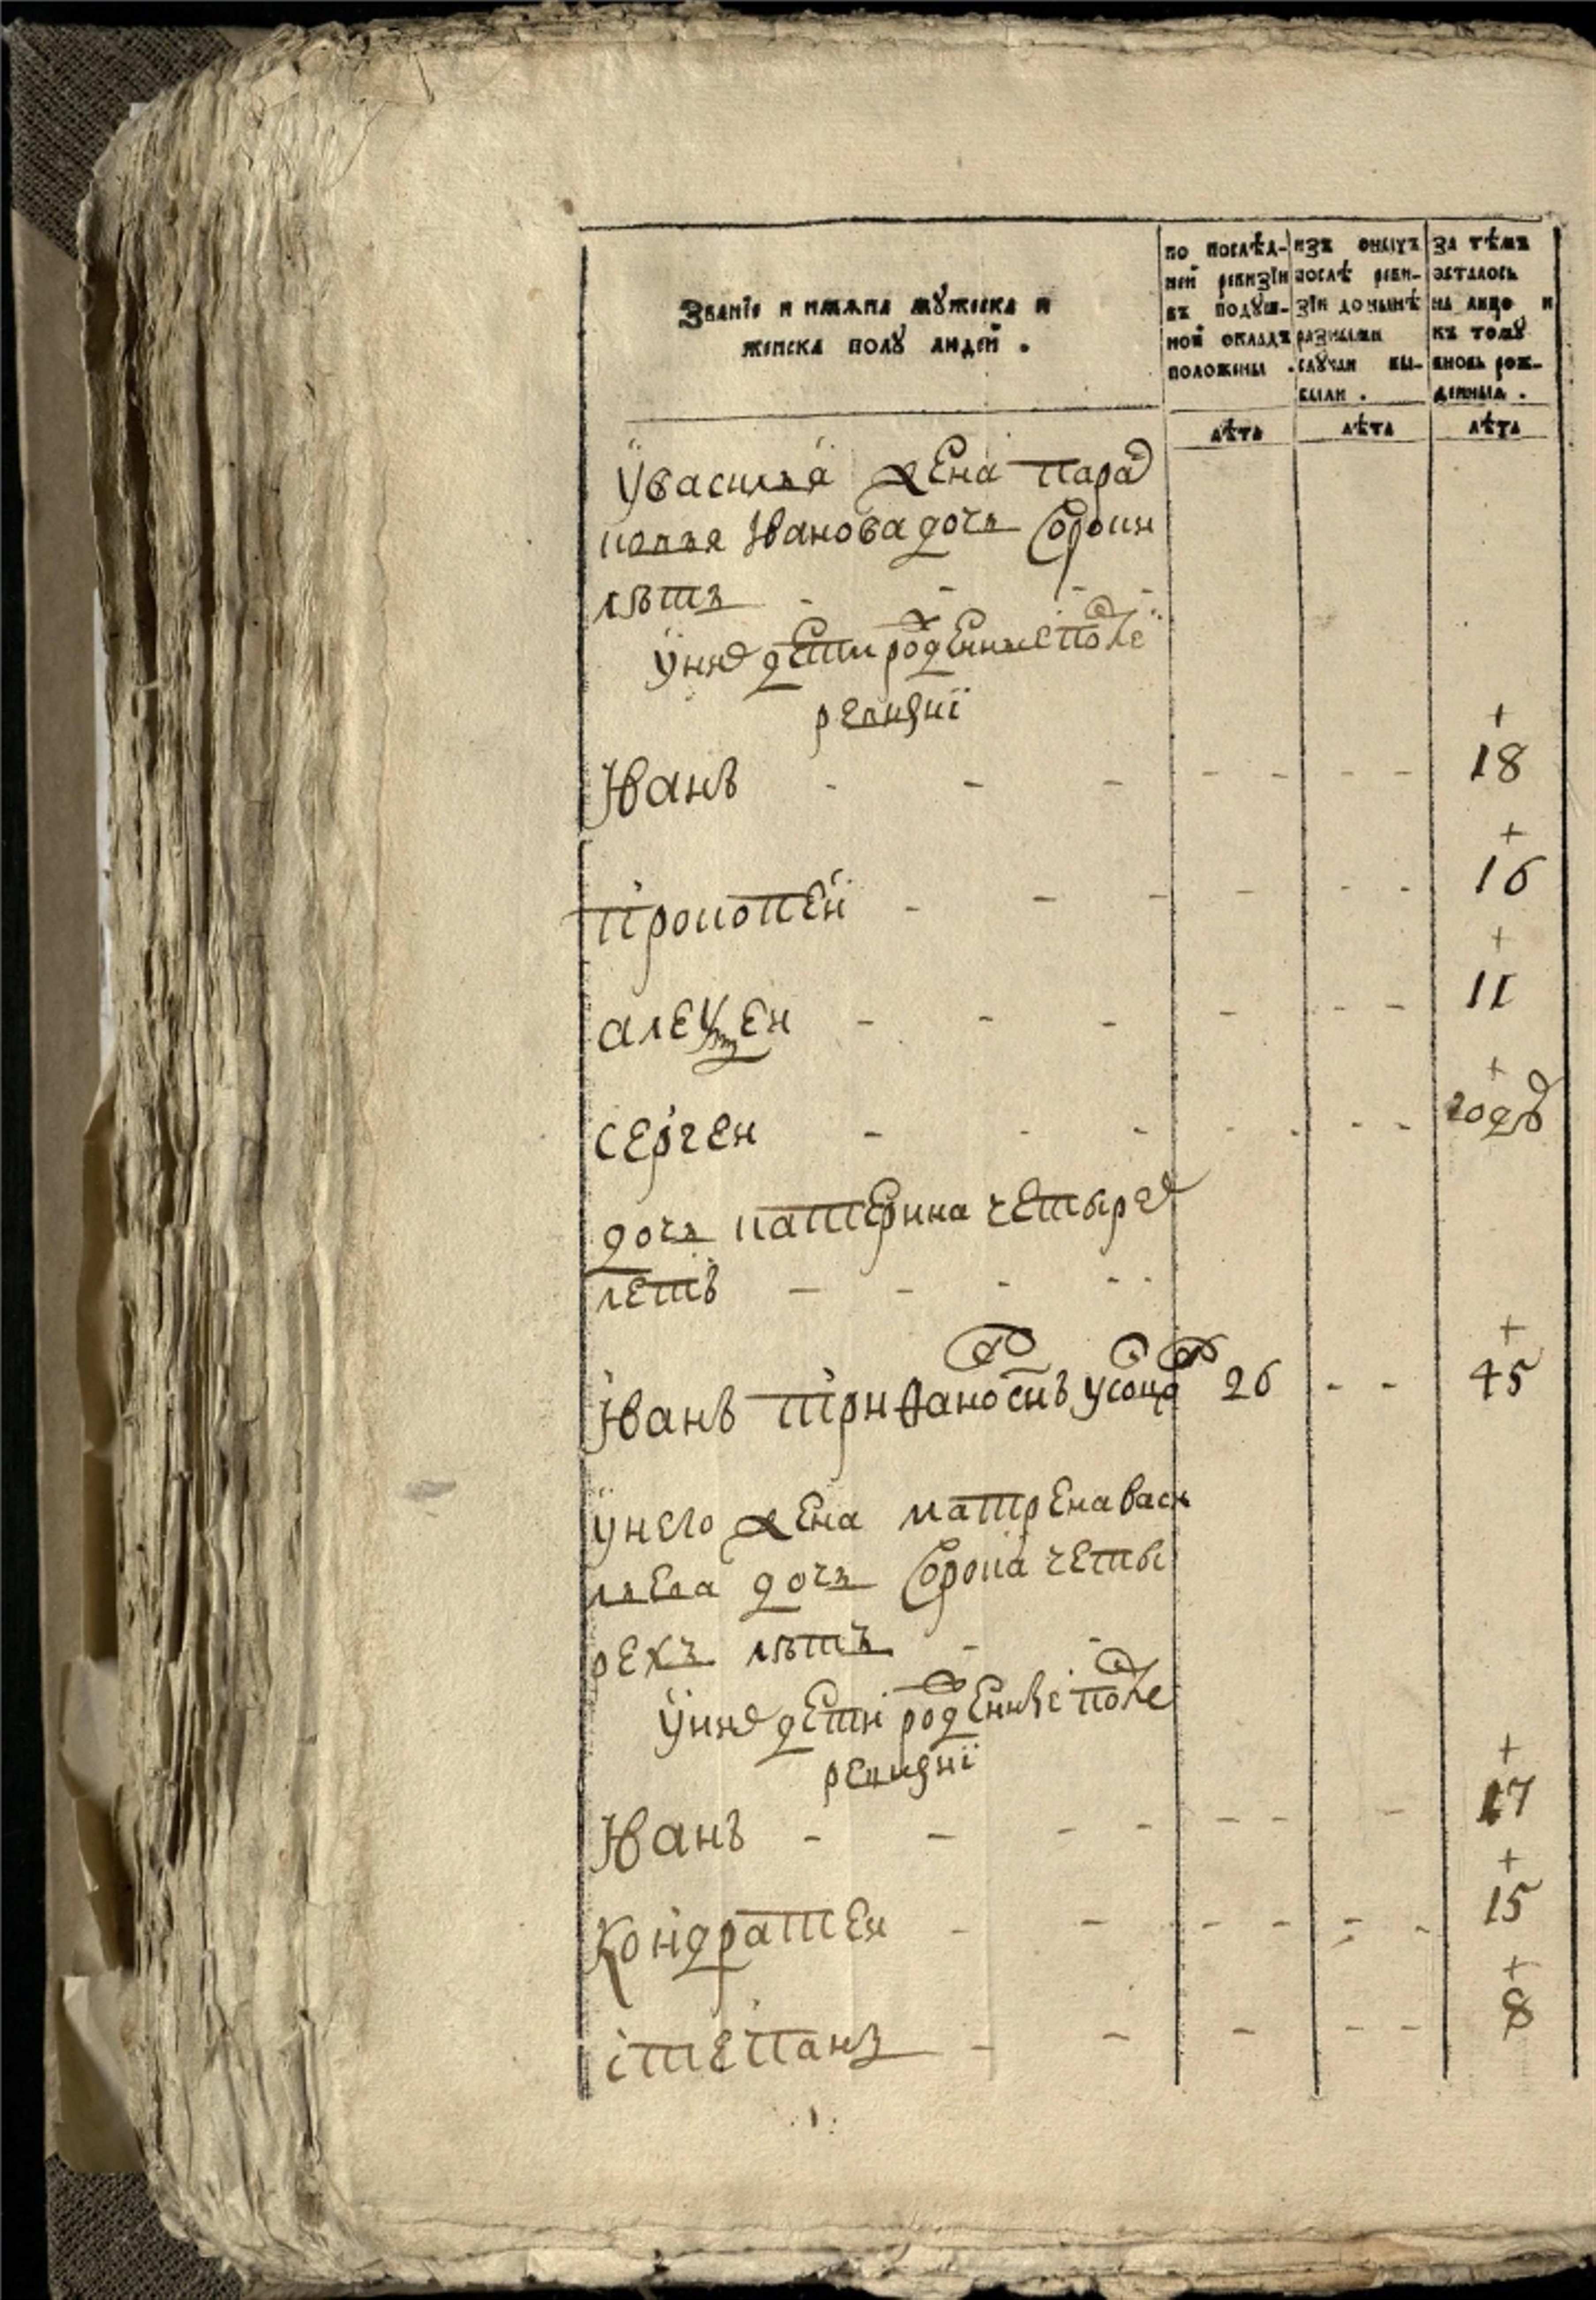 Званїе и имѧна мꙋжеска и
женска полꙋ людей .
по послѣд-
ней ревизїи
въ подꙋш-
ной окладъ
положены .
изъ оныхъ
послѣ реви-
зїи до нынѣ
разными
слꙋчаи вы-
были .
за тѣмъ
осталось
на лицо и
къ томꙋ
вновь рож-
денныя .
лѣта лѣта лѣта
У василья жена парас
ковья Иванова дочь сорокъ
лѣтъ - - -
У нихъ дети рожденные после
ревизиї
Иванъ - - - - - - - + 18
Прокопей - - - - - - + 16
алексей - - - - - - + 11
сергеи - - - - - - - + годъ
дочь катерина четырехъ
летъ - - - -
Иванъ триѳановъ снъ 26 - - + 45
У него жена матрена васи
льева дочь сорока четы
рехъ лѣтъ - -
У нихъ дети рожденные после
ревизиї
Иванъ - - - - - - - + 17
Кондратеи - - - - - - + 15
степанъ - - - - - + 8